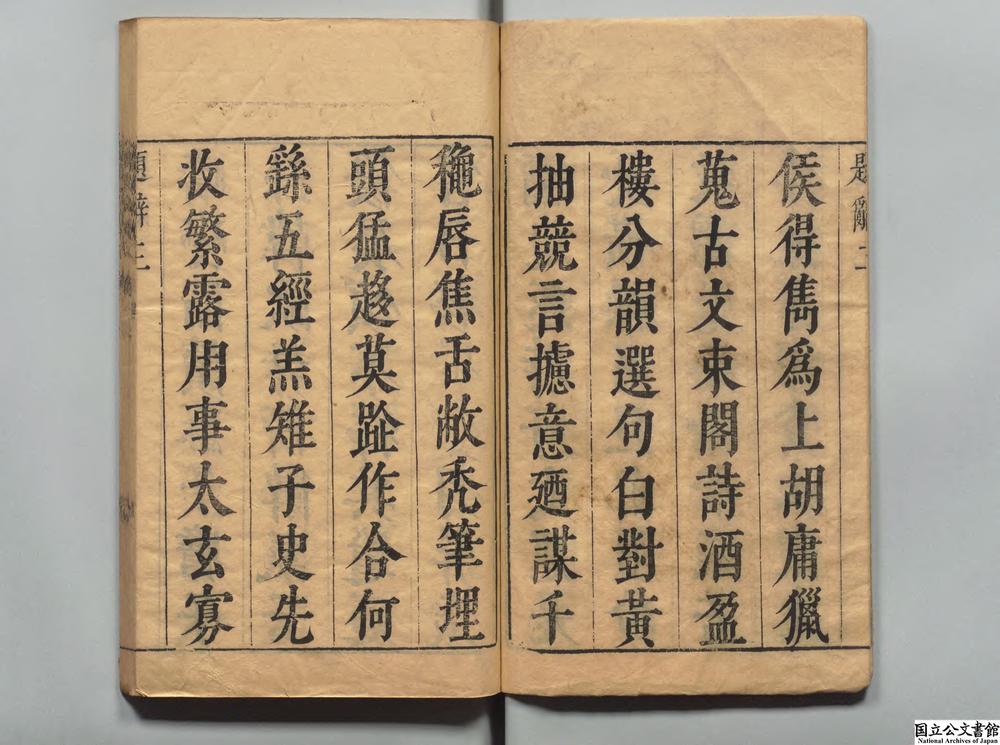 題辭二
侯得雋爲上胡庸獵
蒐古文束閣詩酒盈
樓分韻選句白對黃
抽競言攄意廼謀千
龝唇焦舌敝禿筆埋
頭猛趍莫趾作合何
繇五經羔雉子史先
收繁露用事太玄寡
題辭三
国立公文書館
National Archives of Japan